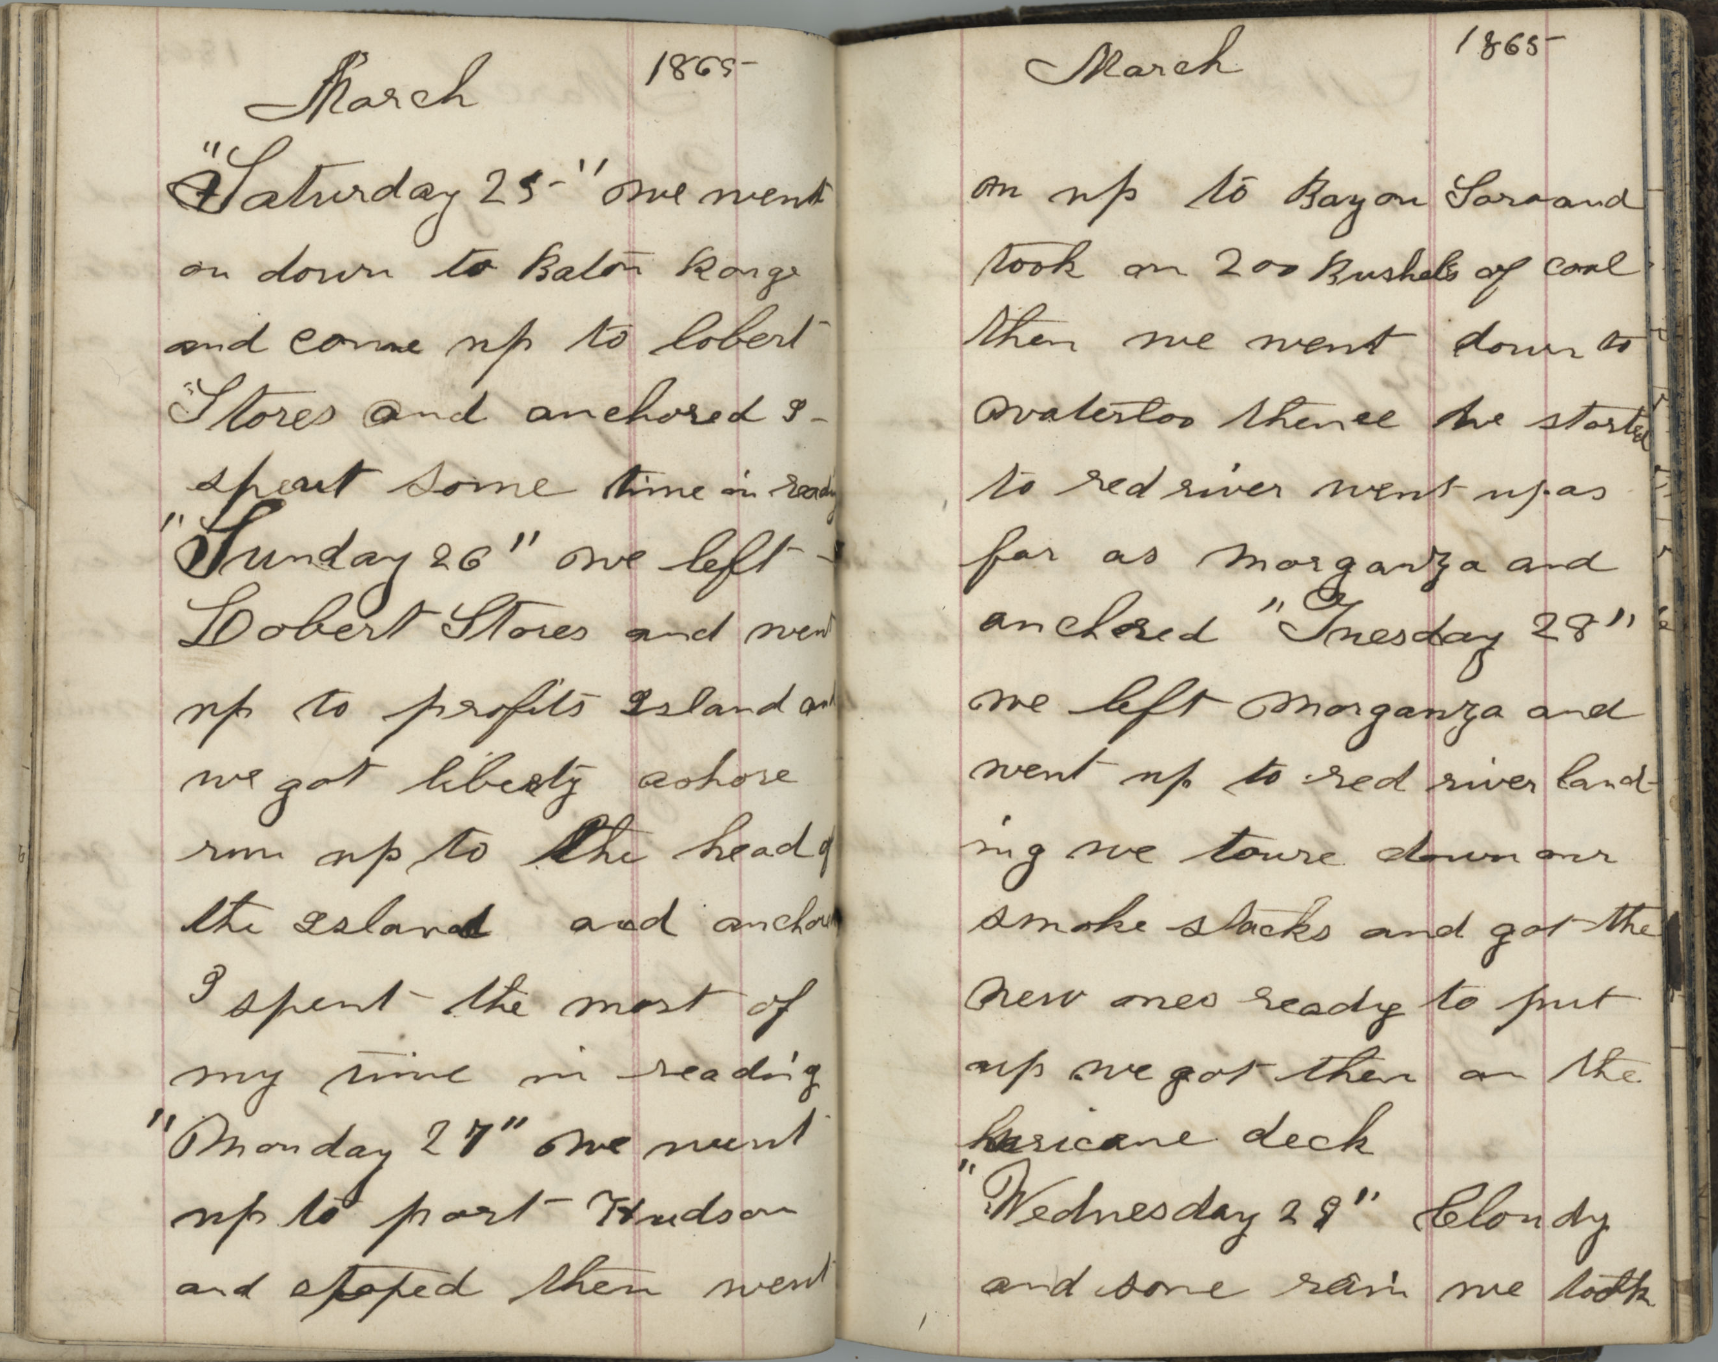 March 1865
"Saturday 25" we went
on down to Baton Rouge
and come up to lobert
"Stores and anchored I
spent some time in readig
"Sunday 26" we left
Lobert Stores and went
up to profits Island and
we got liberty ashore
run up to the head of
the Island and anchor
I spent the most of
my time in readi'g
"Monday 27" we went
up to port Hudson
and stoped then went
March 1865
on up to Bayou Sara and
took on 200 Bushels of coal
then we went down to
waterloo thence we started
to red river went up as
far as Morganza and
anchored "Tuesday 28"
we left Morganza and
went up to red river land-
ing we toure down our
smoke stacks and got the
new ones ready to put
up we got them on the
huricane deck
"Wednesday 29" Cloudy
and some rain we took